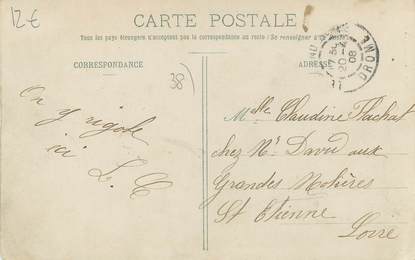 12€
CARTE POSTALE
Tous les pays étrangers n'acceptent pas la correspondance au recto (Se renseigner à la
CORRESPONDANCE
ADRESSE
38
DROME
20 -4
08
On y rigole
ici L. C
Melle Claudine Flachat
chez Mr David aux
Grandes Molières
St Etienne
Loire